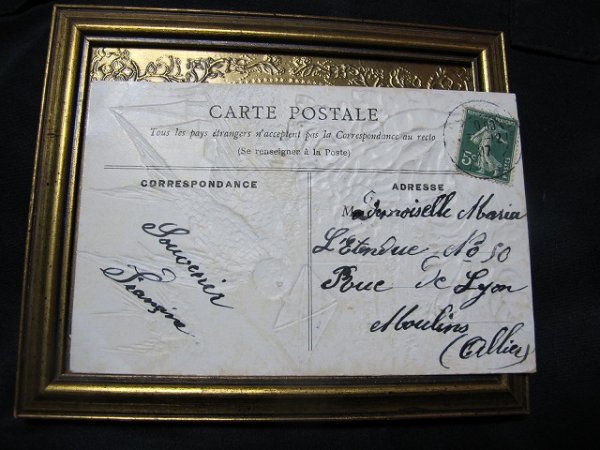 CARTE POSTALE
Tous les pays étrangers n'acceptent pas la Correspondance au recto
(Se renseigner à la Poste)
CORRESPONDANCE
Souvenir
Françine
ADRESSE
Mademoiselle Maria
L'Etendue No 50
Rue de Lyon
Moulins
(Allier)
5c